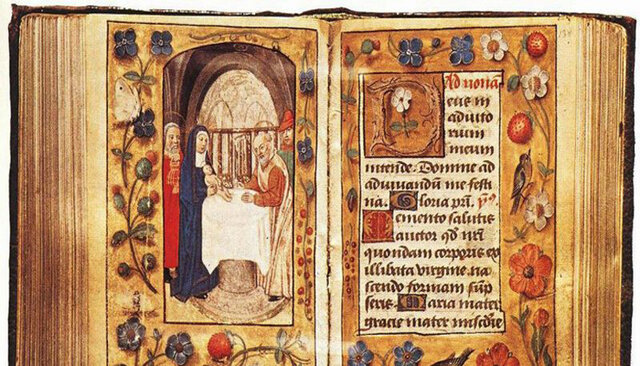 Ad nonā
eus in
adiuto
rium
meum
intende. Domine ad
adiuvandū me festi
na. Gloria pr̄i. ps̄
Memento salutis
auctor qd nr̄i
quondam corporis ex
illibata virgine na
scendo formam sūp
seris. Maria mater
gracie mater miscd̄ie